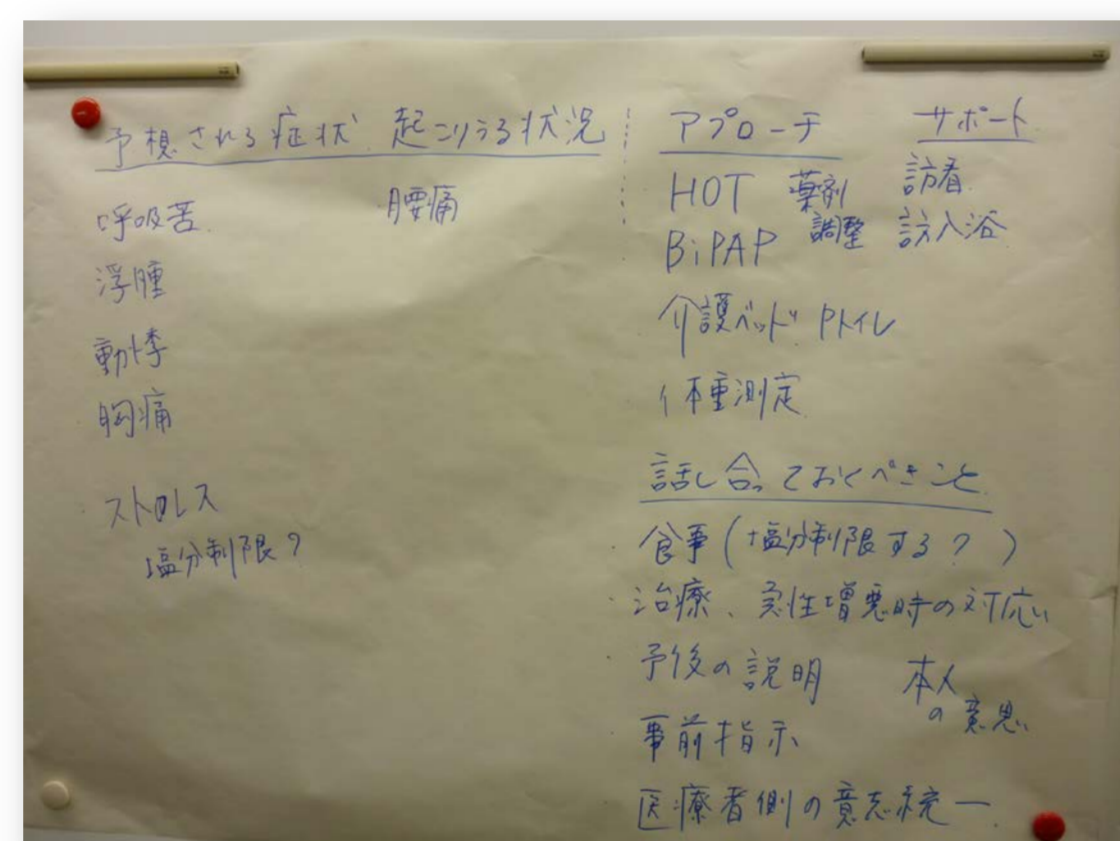 予想される症状、起こりうる状況
呼吸苦 腰痛
浮腫
動悸
胸痛
ストレス
塩分制限?
アプローチ サポート
HOT 薬剤調整 訪看
BiPAP 訪入浴
介護ベッド Pトイレ
体重測定
話し合っておくべきこと
・食事(塩分制限する?)
・治療、急性増悪時の対応い
・予後の説明 本人の意思
・事前指示
医療者側の意志統一